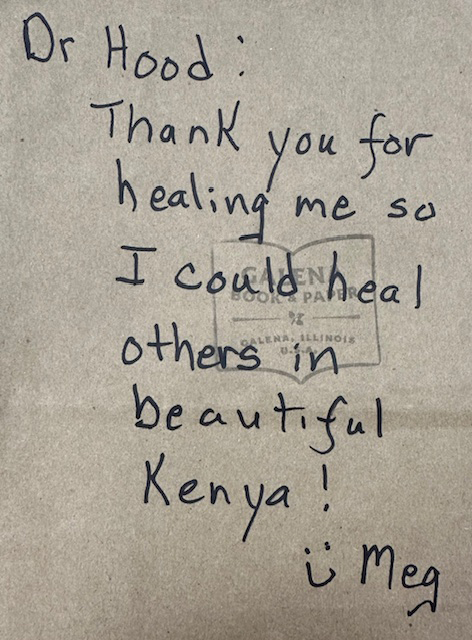 Dr Hood:
Thank you for
healing me so
I could heal
GALENA
BOOK & PAPER
GALENA, ILLINOIS
U.S.A.
others in
beautiful
Kenya!
Meg